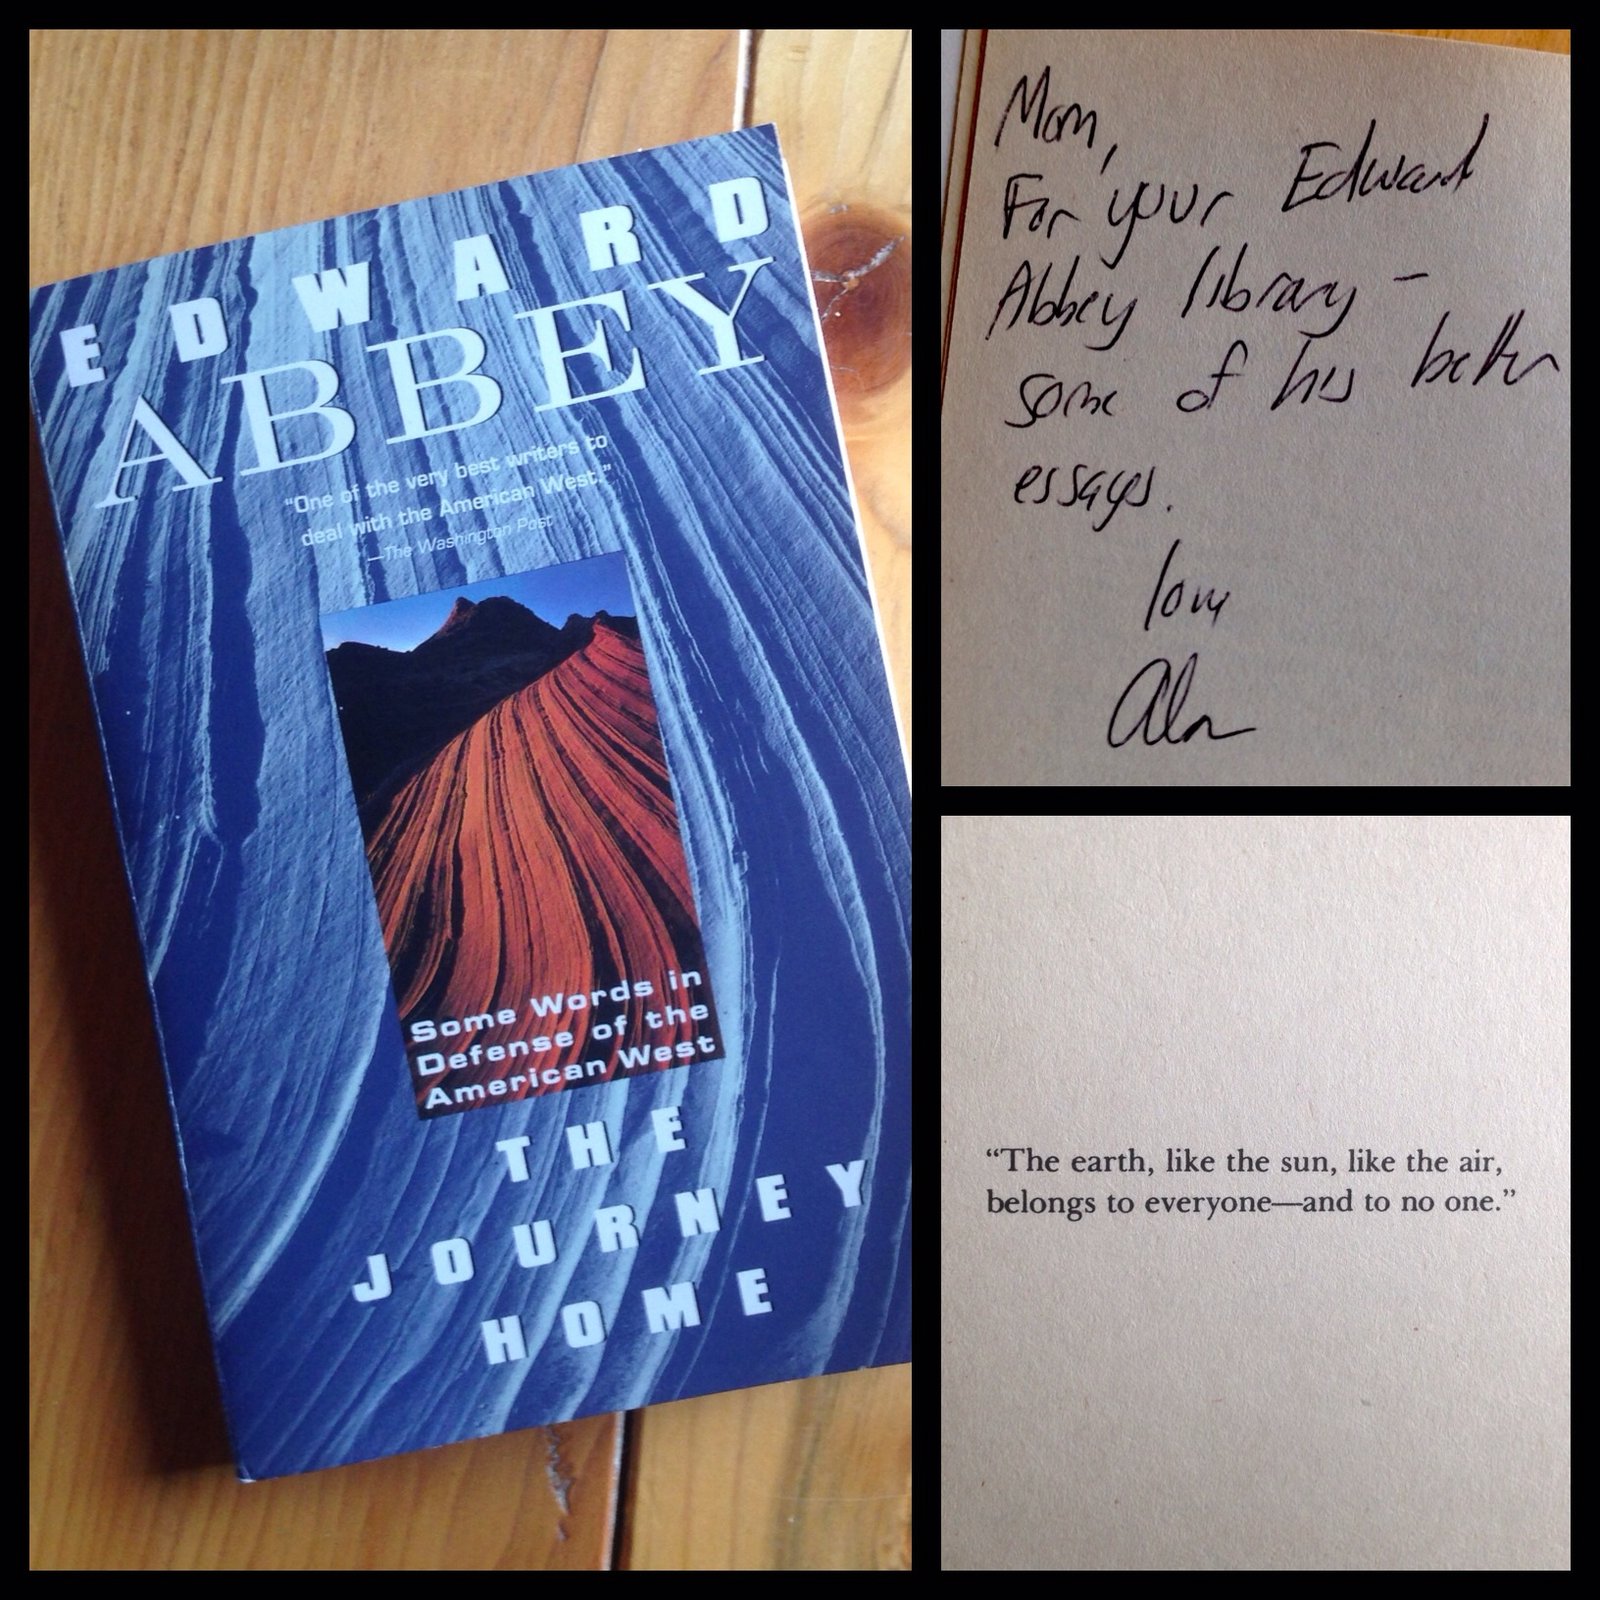 EDWARD
ABBEY
“One of the very best writers to
deal with the American West.”
—The Washington Post
Some Words in
Defense of the
American West
THE
JOURNEY
HOME
Mom,
For your Edward
Abbey library –
some of his better
essays.
love
Alan
“The earth, like the sun, like the air,
belongs to everyone—and to no one.”